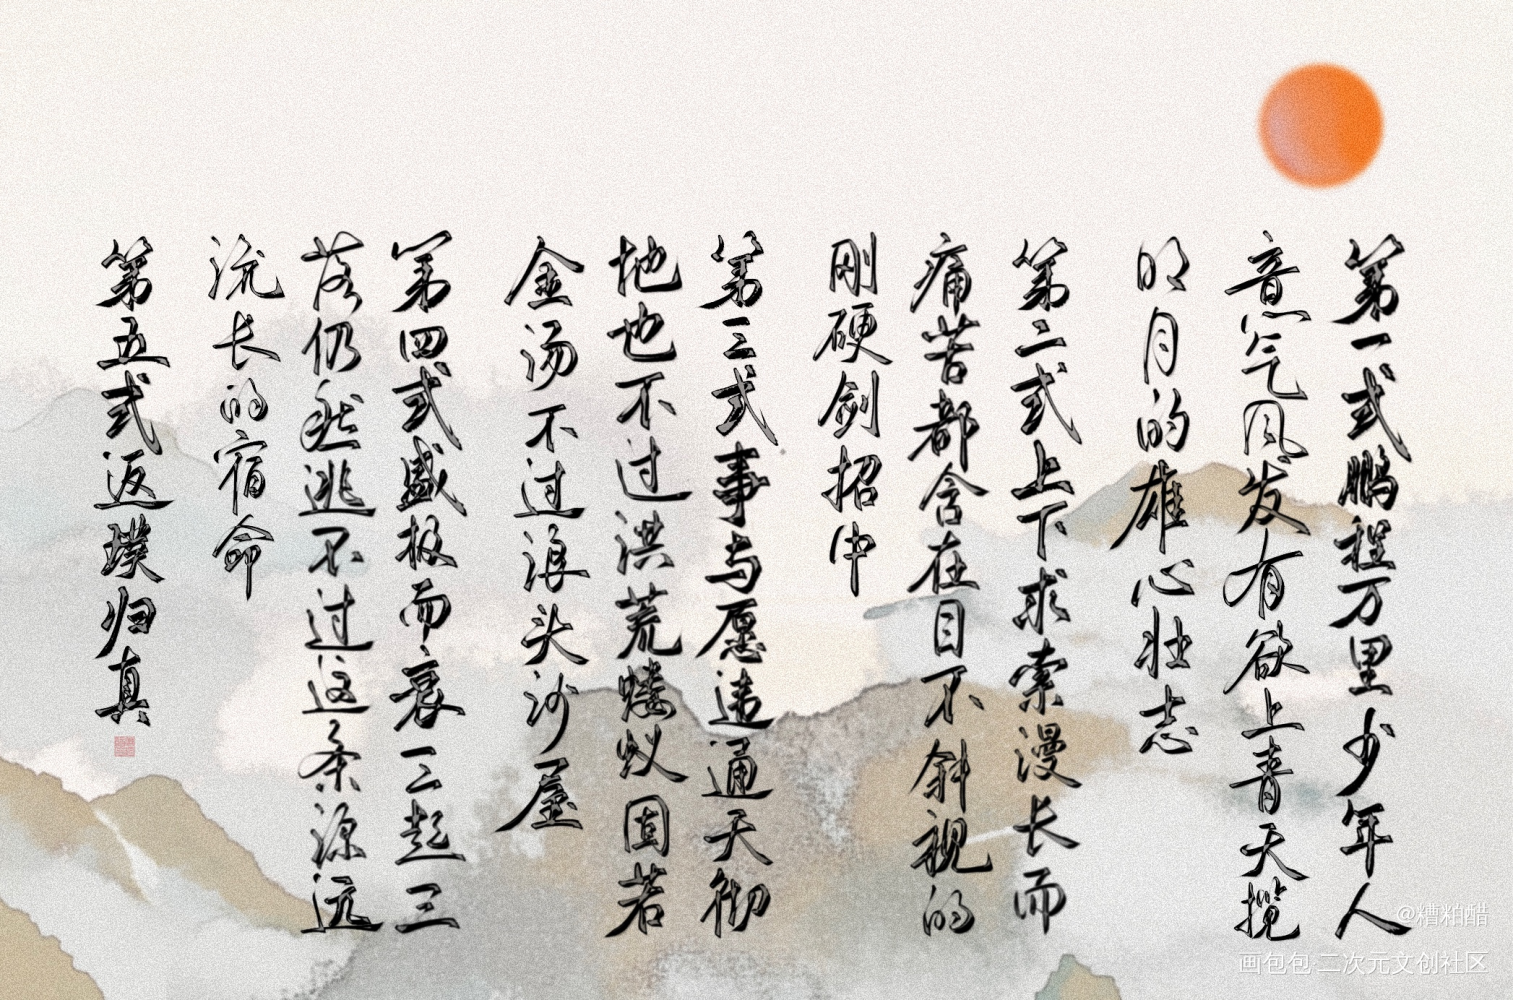 第一式鹏程万里少年人
意气风发有欲上青天揽
明月的雄心壮志
第二式上下求索漫长而
痛苦都含在目不斜视的
刚硬剑招中
第三式事与愿违通天彻
地也不过洪荒蝼蚁固若
金汤不过浪头沙屋
第四式盛极而衰一起三
落仍然逃不过这条源远
流长的宿命
第五式返璞归真
@糟粕醋
画包包·二次元文创社区